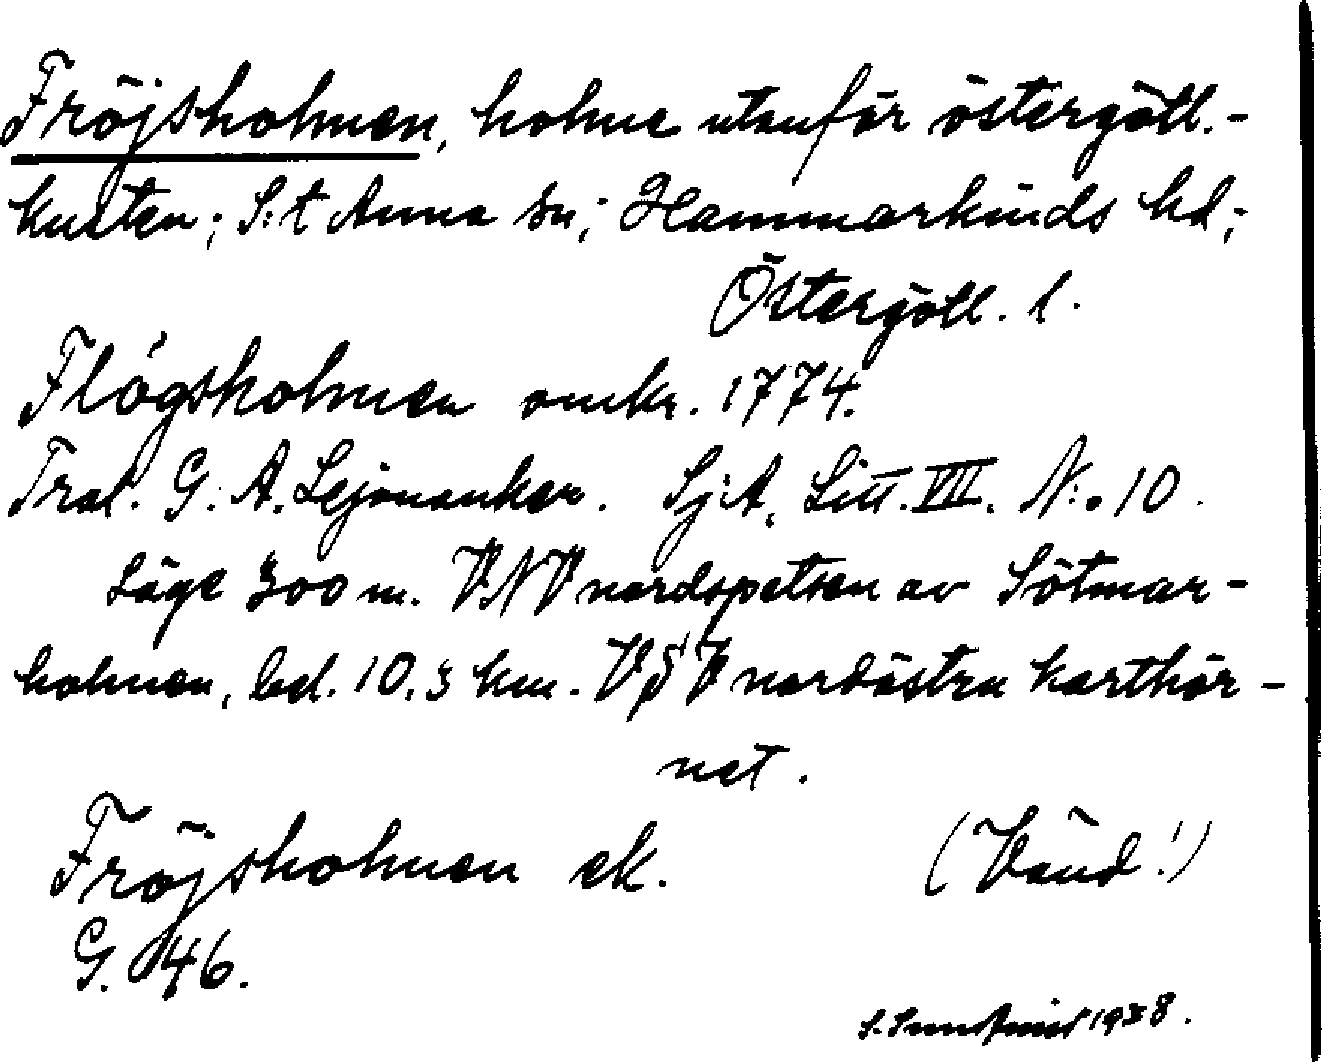 Fröjsholmen, holme utanför östergötl.-
kusten; S:t Anna sn; Hammarkinds hd;
Östergötl. l.
Flögsholmen omkr. 1774.
Tral. G. A. Lejonanker. Sj:A, Litt. VII. N:o 10.
Läge 300 m. VNV nordspetsen av Sötmar-
holmen, bel. 10,3 km. VSV nordöstra karthör-
net.
Fröjsholmen ek. (Vänd!)
G. 46.
S. Sundqvist 1938.